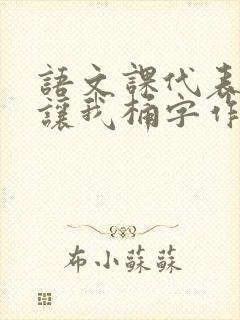 語文課代表
讓我桶字作
布小蘇蘇